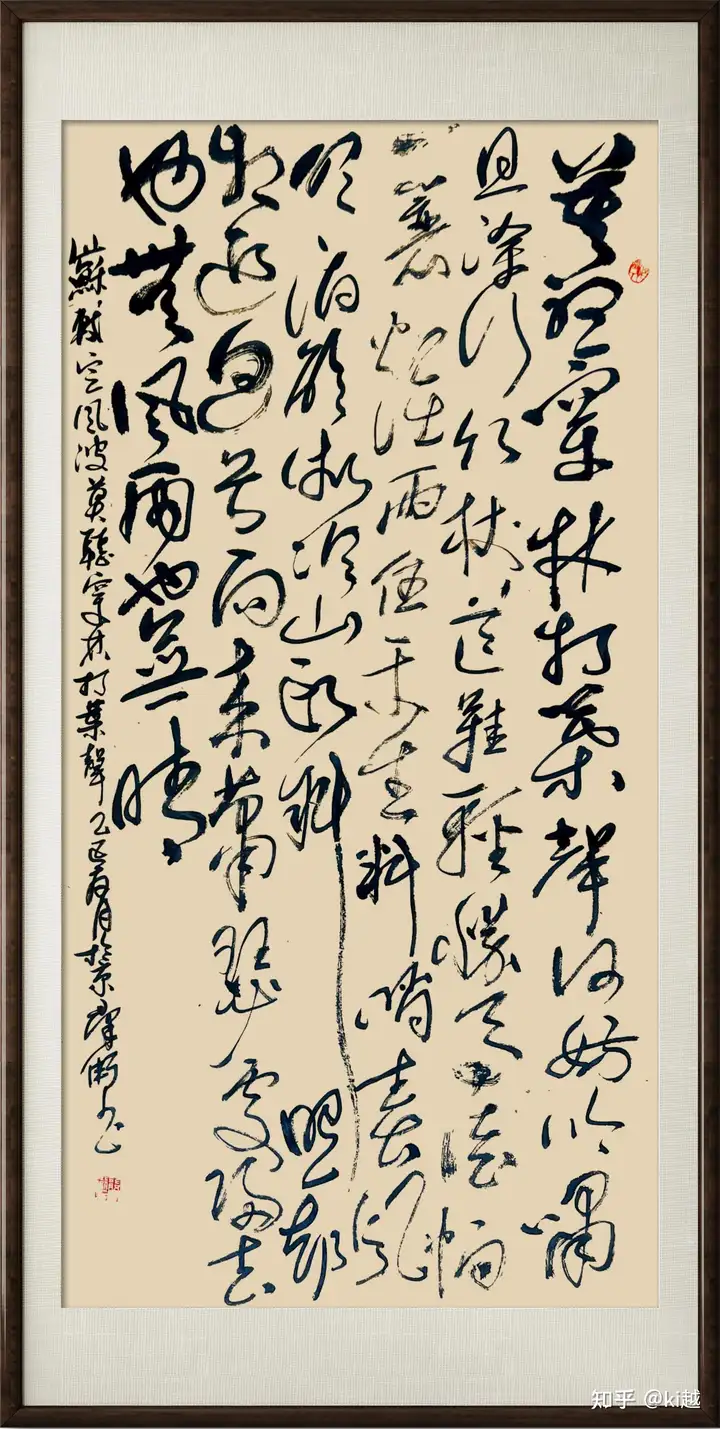 莫聽穿林打葉聲何妨吟嘯
且徐行竹杖芒鞋輕勝馬誰怕
一蓑烟雨任平生料峭春風
酒醒微冷山頭斜照却
相迎回首向來蕭瑟處歸去
也無風雨也無晴
蘇軾定風波莫聽穿林打葉聲乙巳月於京
知乎 @ki越